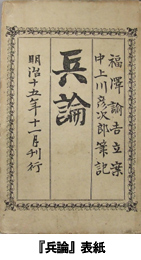 福澤諭吉立案
中上川彦次郎筆記
兵論
明治十五年十一月刊行
『兵論』表紙